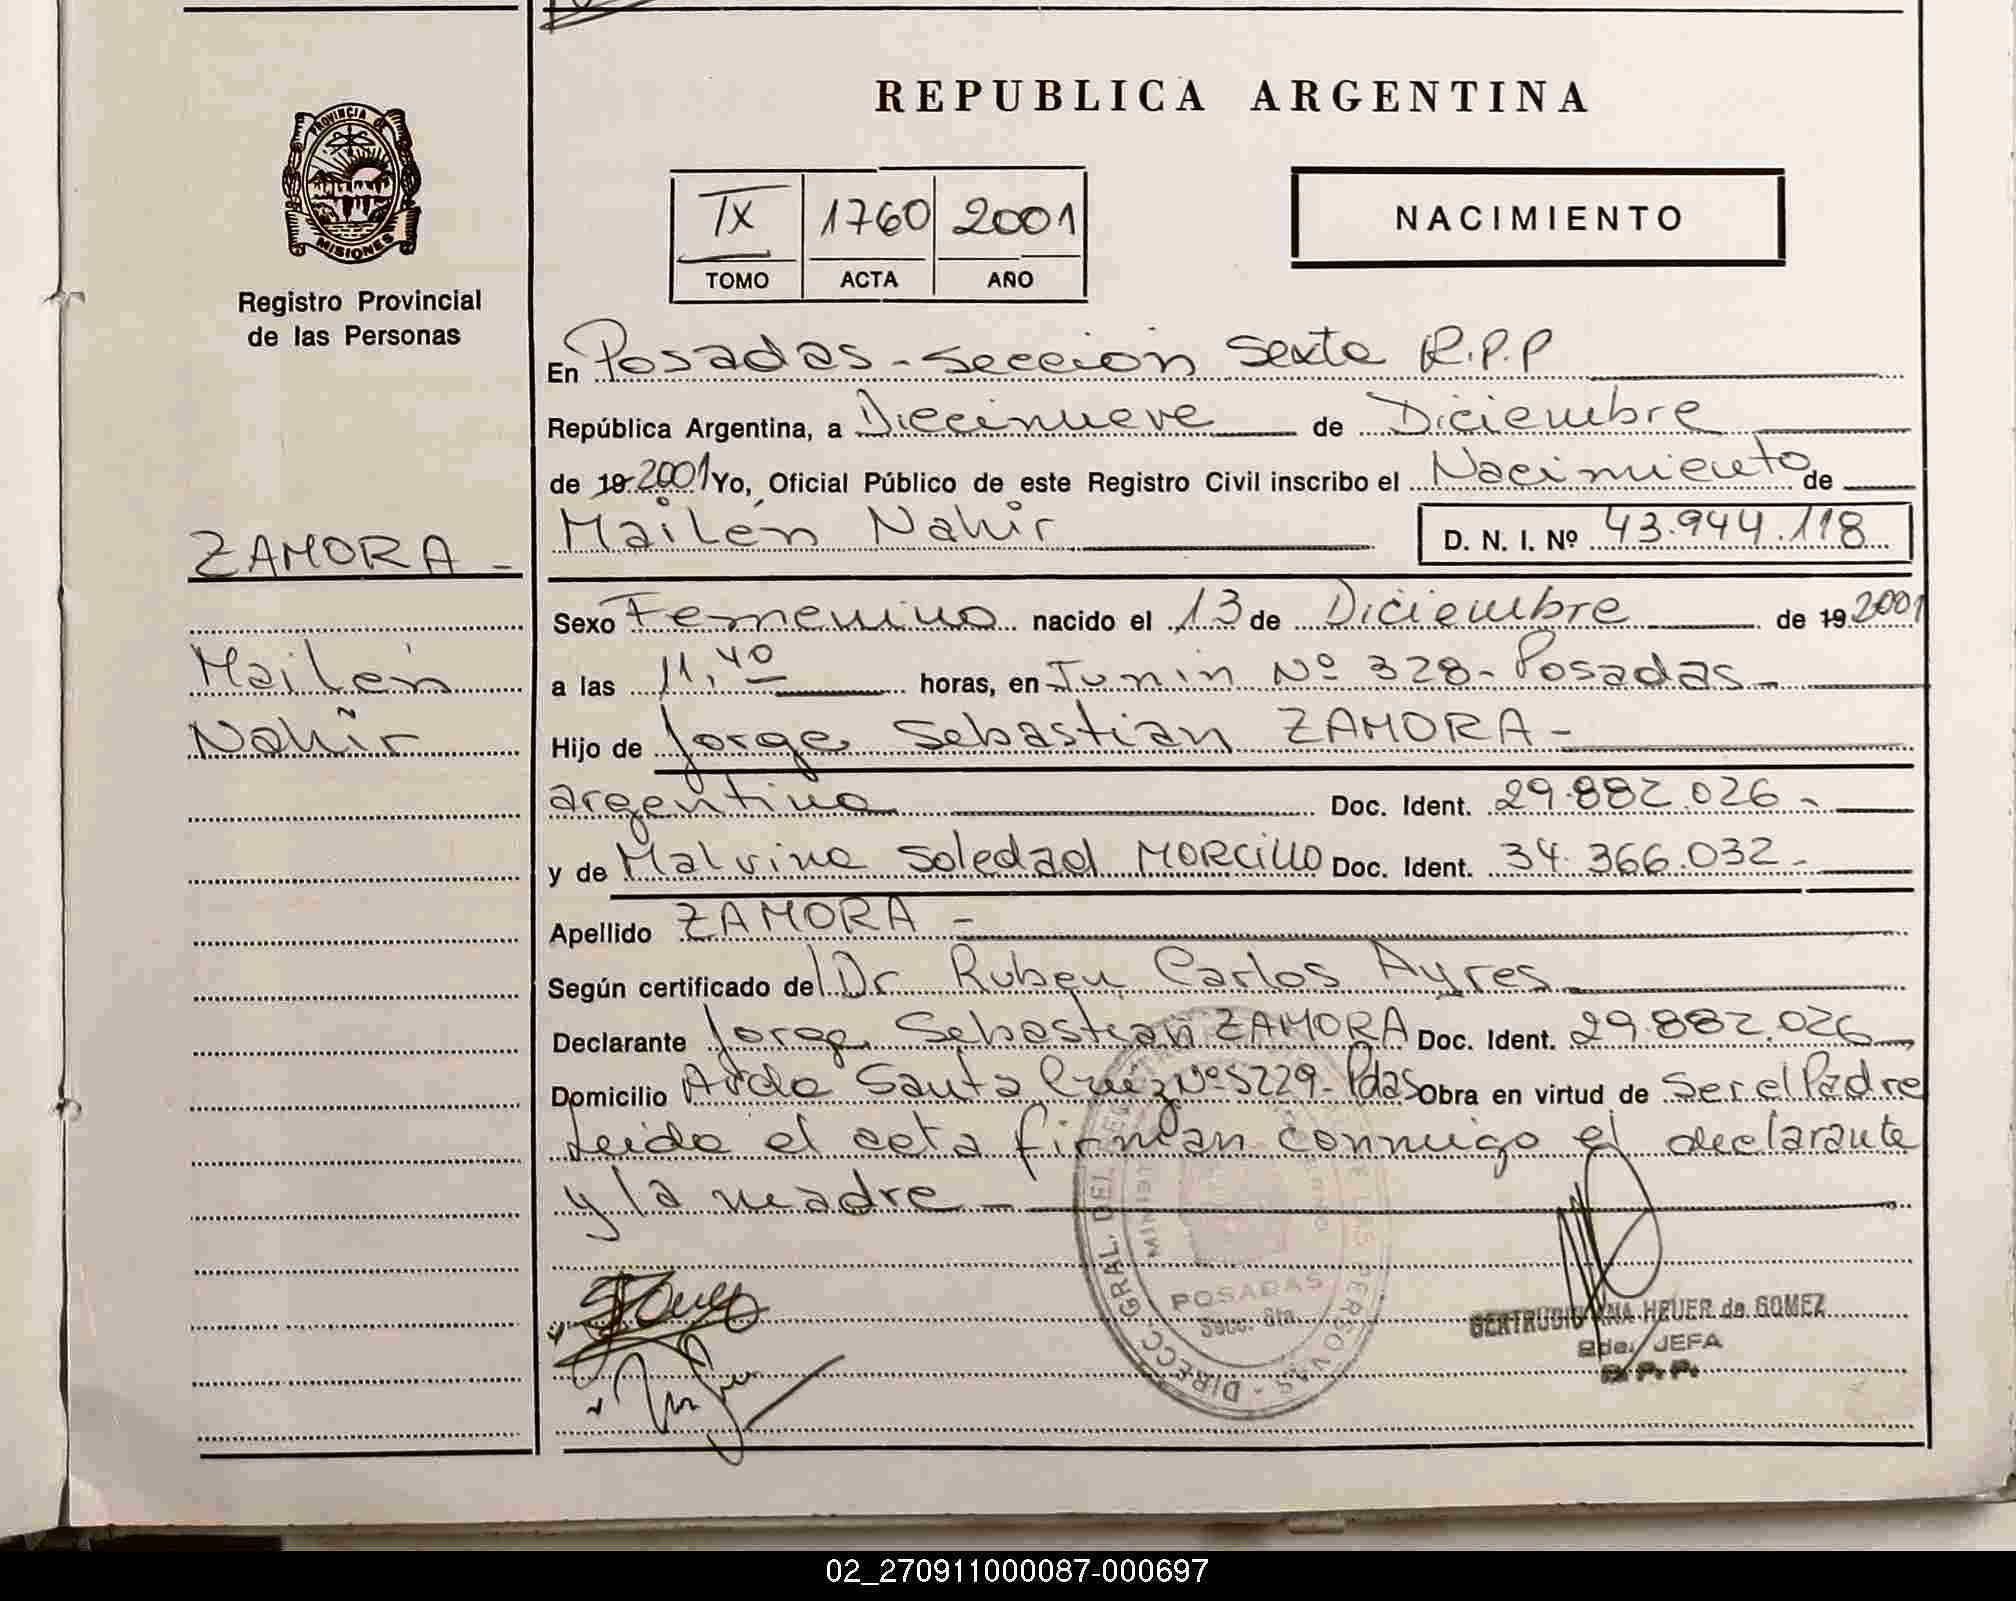 REPUBLICA ARGENTINA
PROVINCIA DE
MISIONES
Registro Provincial
de las Personas
TX 1760 2001
TOMO ACTA AÑO
NACIMIENTO
En Posadas - Sección Sexta R.P.P
República Argentina, a Diecinueve de Diciembre
de 19 2001 Yo, Oficial Público de este Registro Civil inscribo el Nacimiento de
ZAMORA -
Mailén Nahir
D. N. I. Nº 43.944.118
Sexo Femenino nacido el 13 de Diciembre de 19 2001
Mailén
a las 11,40 horas, en Junin Nº 328 - Posadas -
Nahir
Hijo de Jorge Sebastian ZAMORA -
argentina Doc. Ident. 29.882.026 -
y de Malvina Soledad MORCILLO Doc. Ident. 34.366.032 -
Apellido ZAMORA -
Según certificado del Dr Ruben Carlos Ayres
Declarante Jorge Sebastian ZAMORA Doc. Ident. 29.882.026
Domicilio Avda Santa Cruz Nº 5229 - Pdas Obra en virtud de Ser el Padre
Leida el acta firman conmigo el declarante
y la madre -
DIRECC. GRAL. DEL
POSADAS
Secc. 6ta.
GERTRUDIS ANA HEUER de GOMEZ
2da. JEFA
R.P.P.
02_270911000087-000697